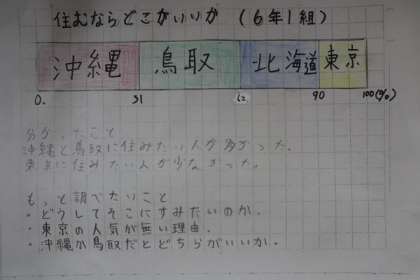 住むならどこがいいか (6年1組)
沖縄 鳥取 北海道 東京
0. 31 62 90 100(%)
分かったこと
沖縄と鳥取に住みたい人が多かった.
東京に住みたい人が少なかった.
もっと調べたいこと
・どうしてそこにすみたいのか.
・東京の人気が無い理由.
・沖縄か鳥取だとどちらがいいか.